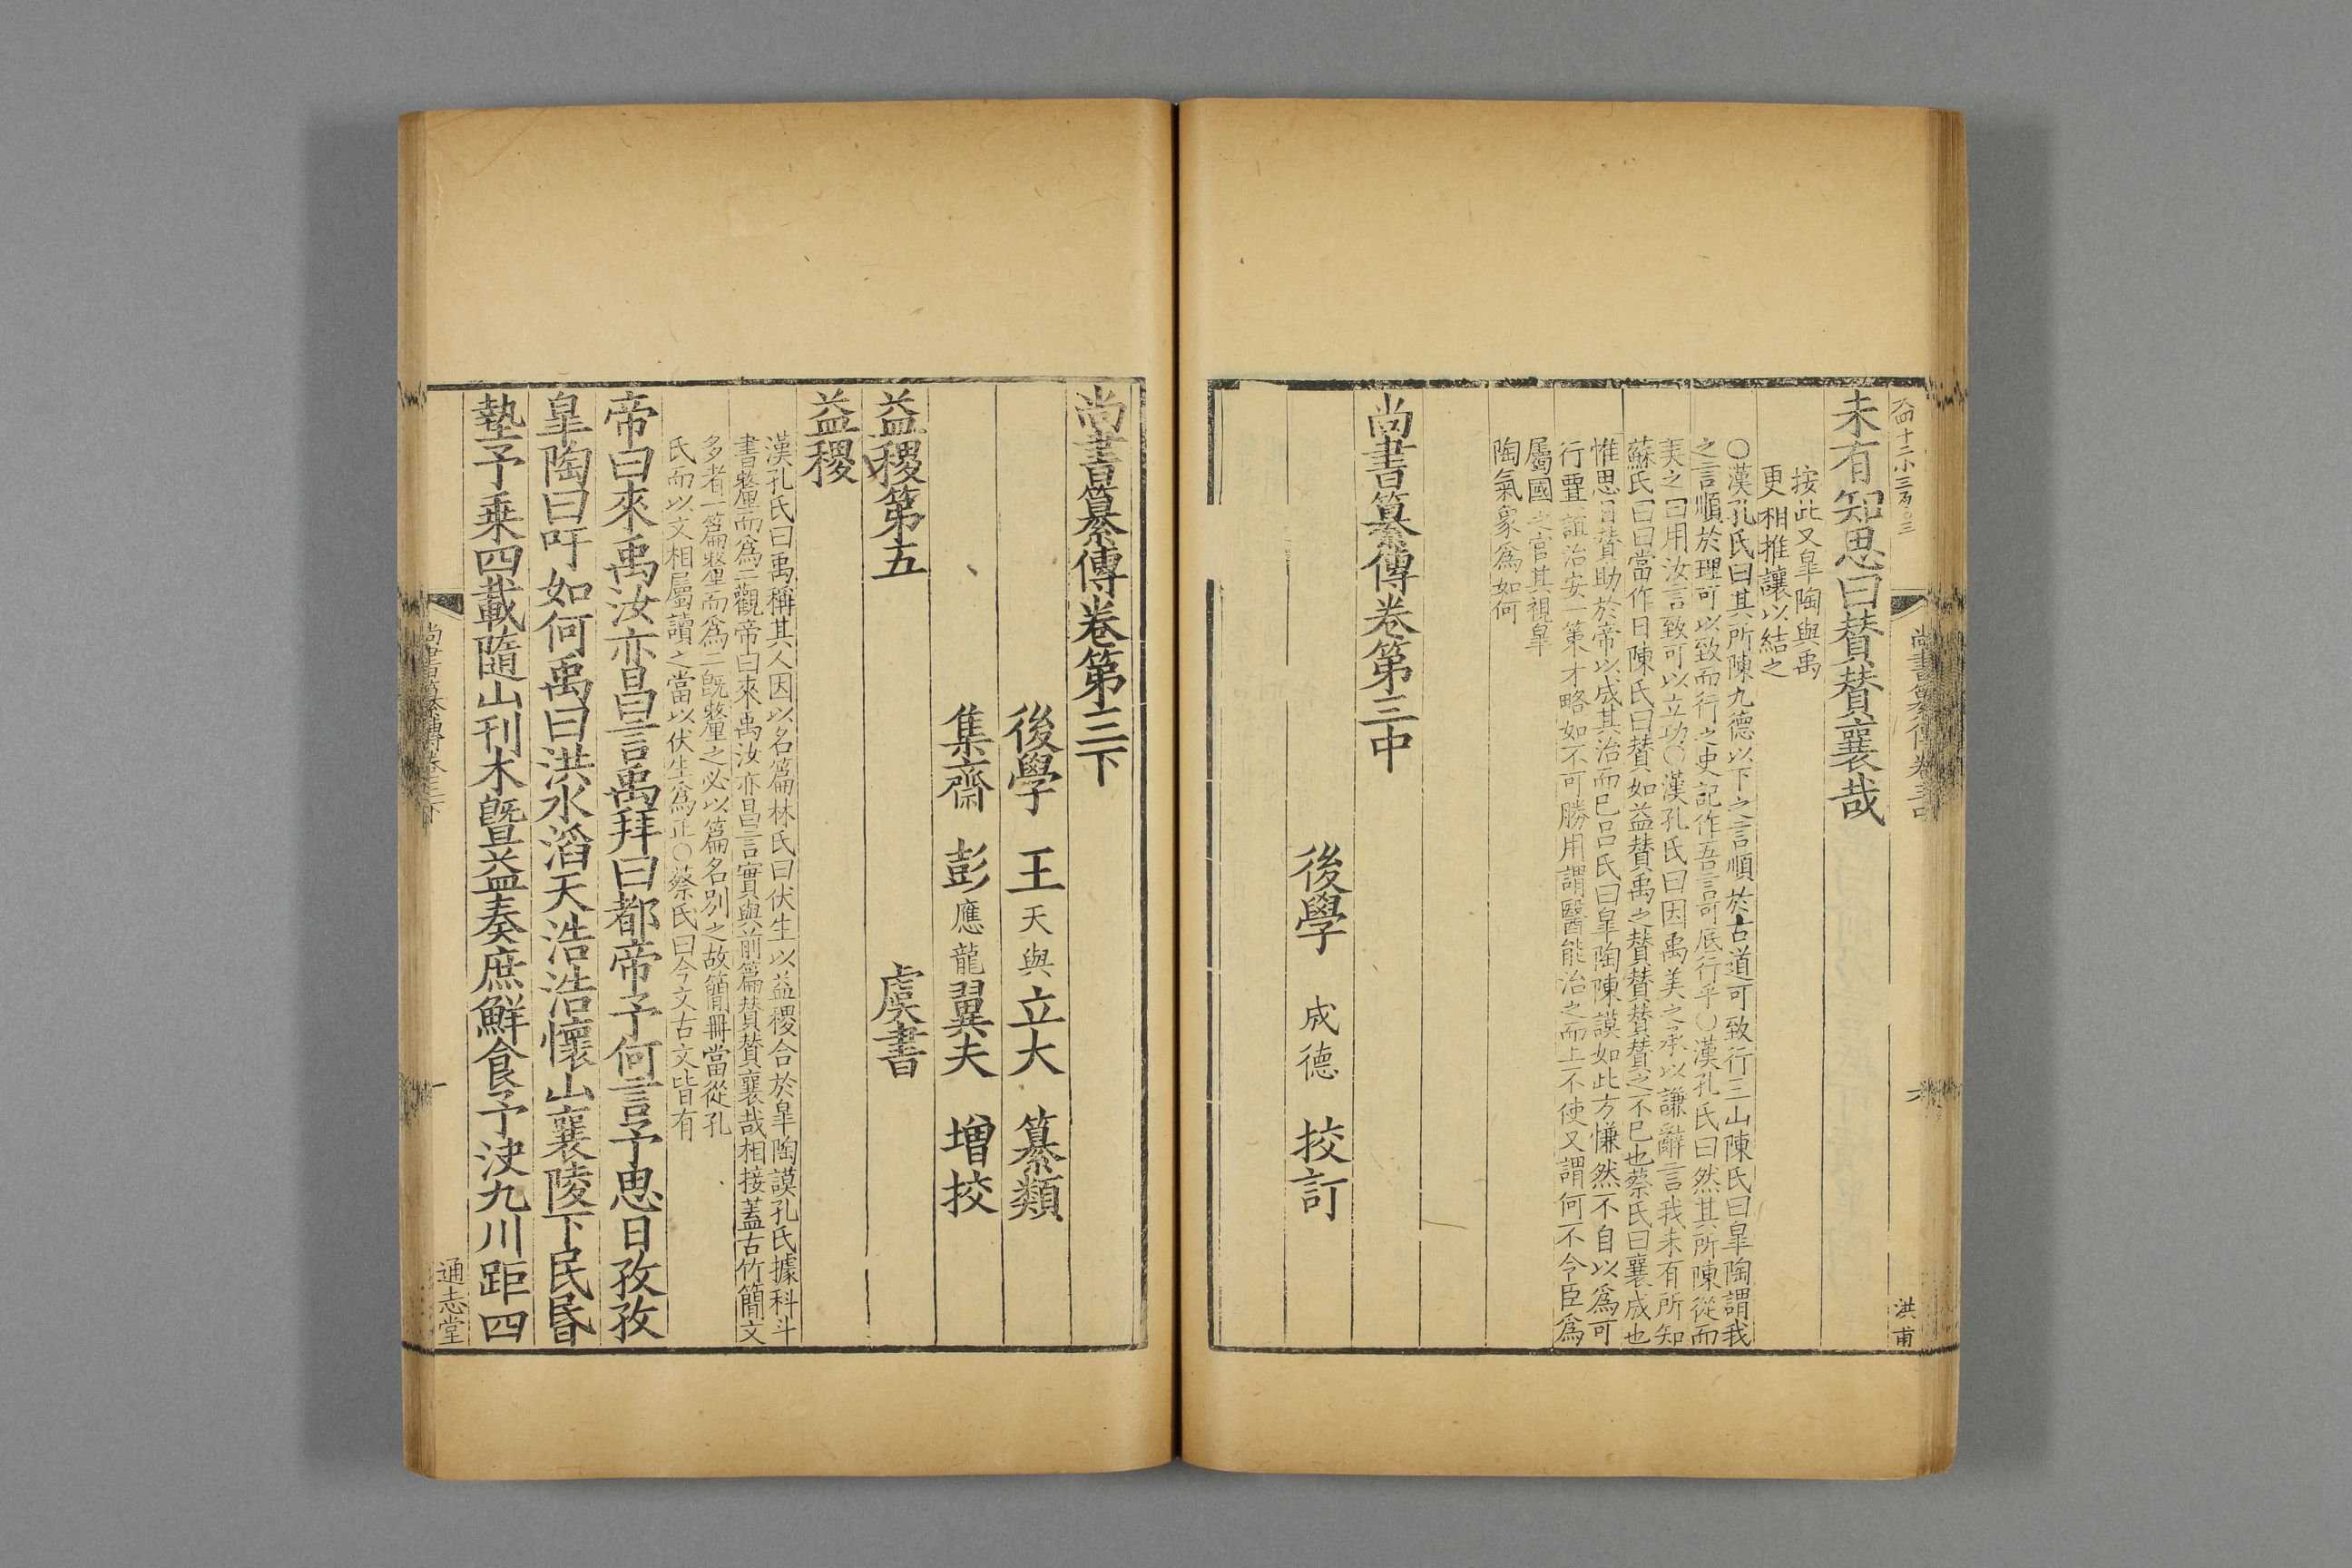 未有知思曰贊贊襄哉
按此又皐陶與禹
更相推讓以結之
○漢孔氏曰其所陳九德以下之言順於古道可致行三山陳氏曰皐陶謂我
之言順於理可以致而行之史記作吾言可厎行乎○漢孔氏曰然其所陳從而
美之曰用汝言致可以立功○漢孔氏曰因禹美之承以謙辭言我未有所知
蘇氏曰曰當作日陳氏曰贊如益贊禹之贊贊贊之不已也蔡氏曰襄成也
惟思日贊助於帝以成其治而已呂氏曰皐陶陳謨如此方慊然不自以爲可
行賈誼治安一策才略如不可勝用謂醫能治之而上不使又謂何不令臣爲
屬國之官其視皐
陶氣象爲如何
尚書纂傳卷第三中
後學 成德 挍訂
洪甫
尚書纂傳卷第三下
後學 王天與立大 纂類
集齋 彭應龍翼夫 增挍
益稷第五 虞書
益稷
漢孔氏曰禹稱其人因以名篇林氏曰伏生以益稷合於皐陶謨孔氏據科斗
書釐而爲二觀帝曰來禹汝亦昌言實與前篇贊贊襄哉相接蓋古竹簡文
多者一篇釐而爲二旣釐之必以篇名别之故簡冊當從孔
氏而以文相屬讀之當以伏生爲正○蔡氏曰今文古文皆有
帝曰來禹汝亦昌言禹拜曰都帝予何言予思日孜孜
皐陶曰吁如何禹曰洪水滔天浩浩懷山襄陵下民昏
墊予乗四載隨山刊木曁益奏庶鮮食予決九川距四
尚書纂傳卷三下
通志堂